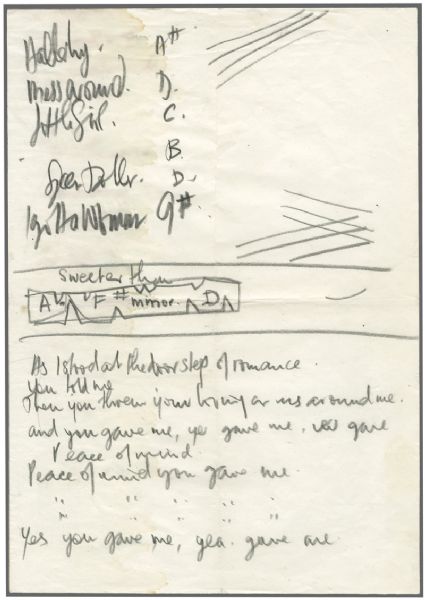 Hallelujah. A#
Mess around. D.
Little Girl. C.
B.
Silver Dollar. D.
I got a Woman G#
Sweeter than
A F# minor. D
As I stood at the doorstep of romance.
You told me
Then you threw your loving arms around me.
and you gave me, yes gave me, you gave
Peace of mind.
Peace of mind you gave me.
" " " " "
" " " " "
Yes you gave me, yea. gave me.